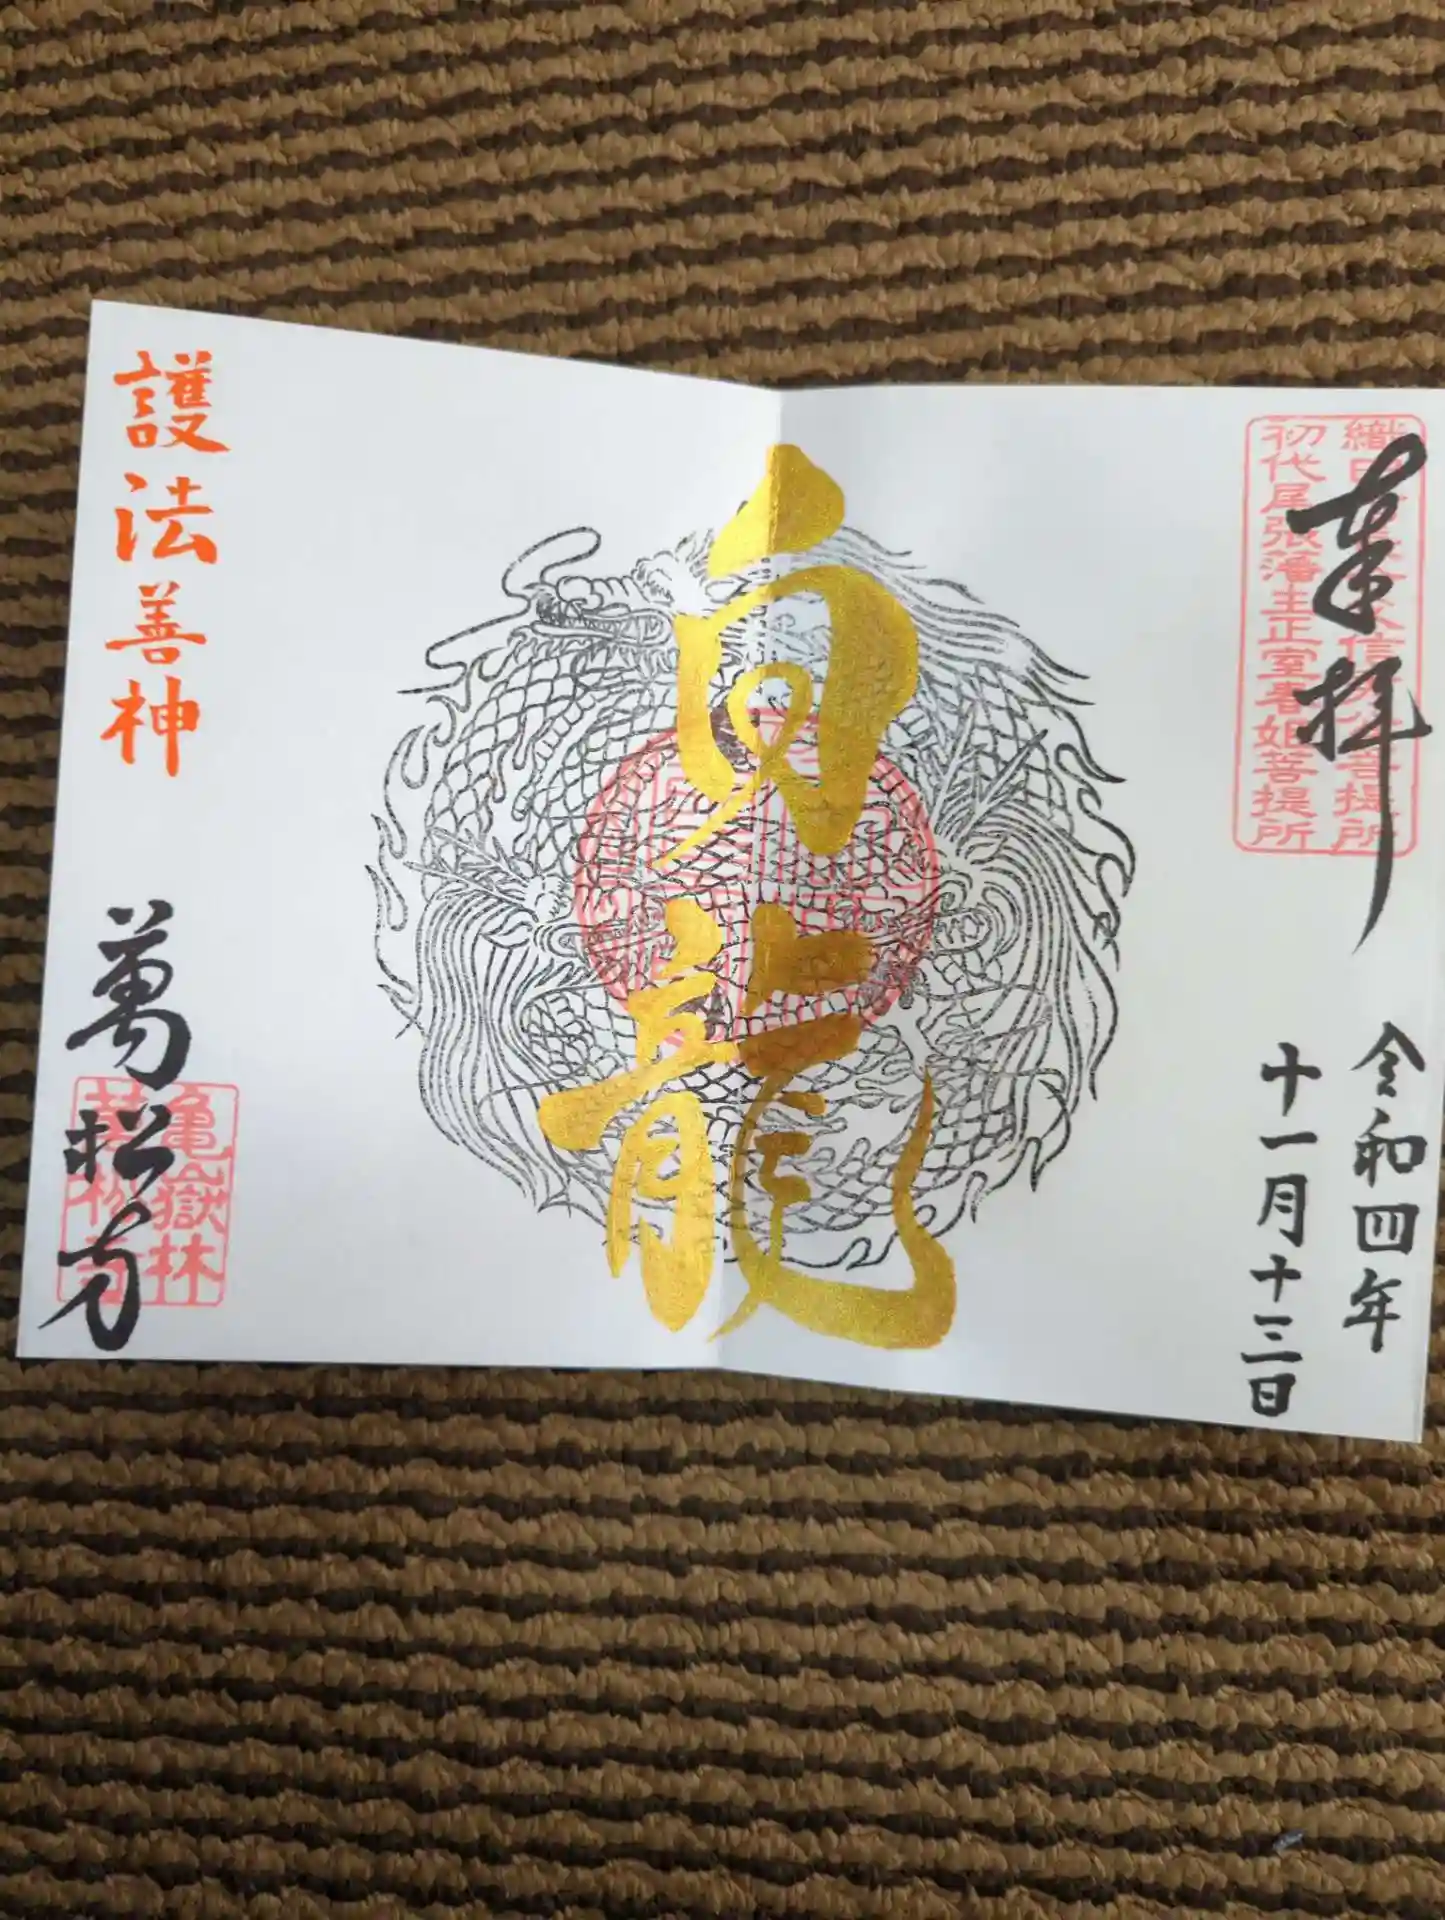 奉拝
初代尾張藩主正室春姫菩提所
令和四年
十一月十三日
白龍
護法善神
萬松寺
亀嶽林
萬松寺